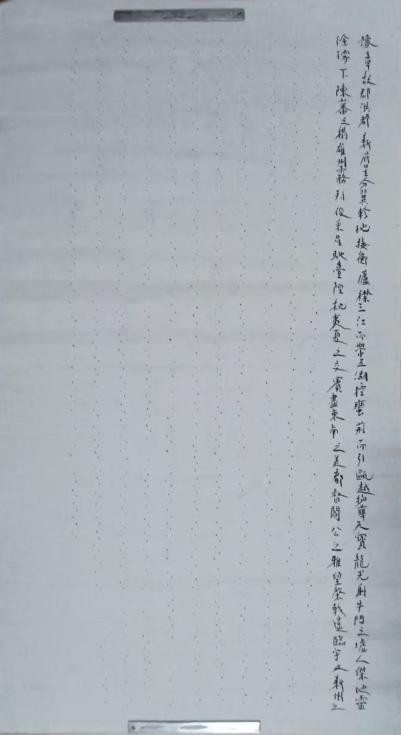 豫章故郡洪都新府星分翼軫地接衡廬襟三江而帶五湖控蠻荊而引甌越物華天寶龍光射牛鬥之墟人傑地靈
徐孺下陳蕃之榻雄州霧列俊采星馳臺隍枕夷夏之交賓盡東南之美都督閻公之雅望棨戟遙臨宇文新州之